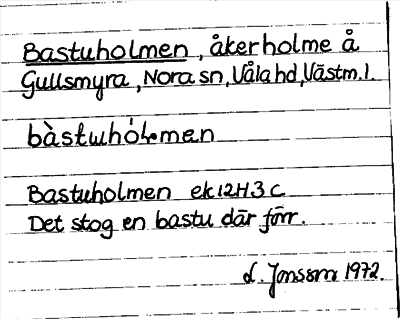 Bastuholmen, åkerholme å
Gullsmyra, Nora sn, Våla hd, Västm. l.
bàstuhólmen
Bastuholmen ek 12H3c
Det stog en bastu där förr.
L. Jonsson 1972.